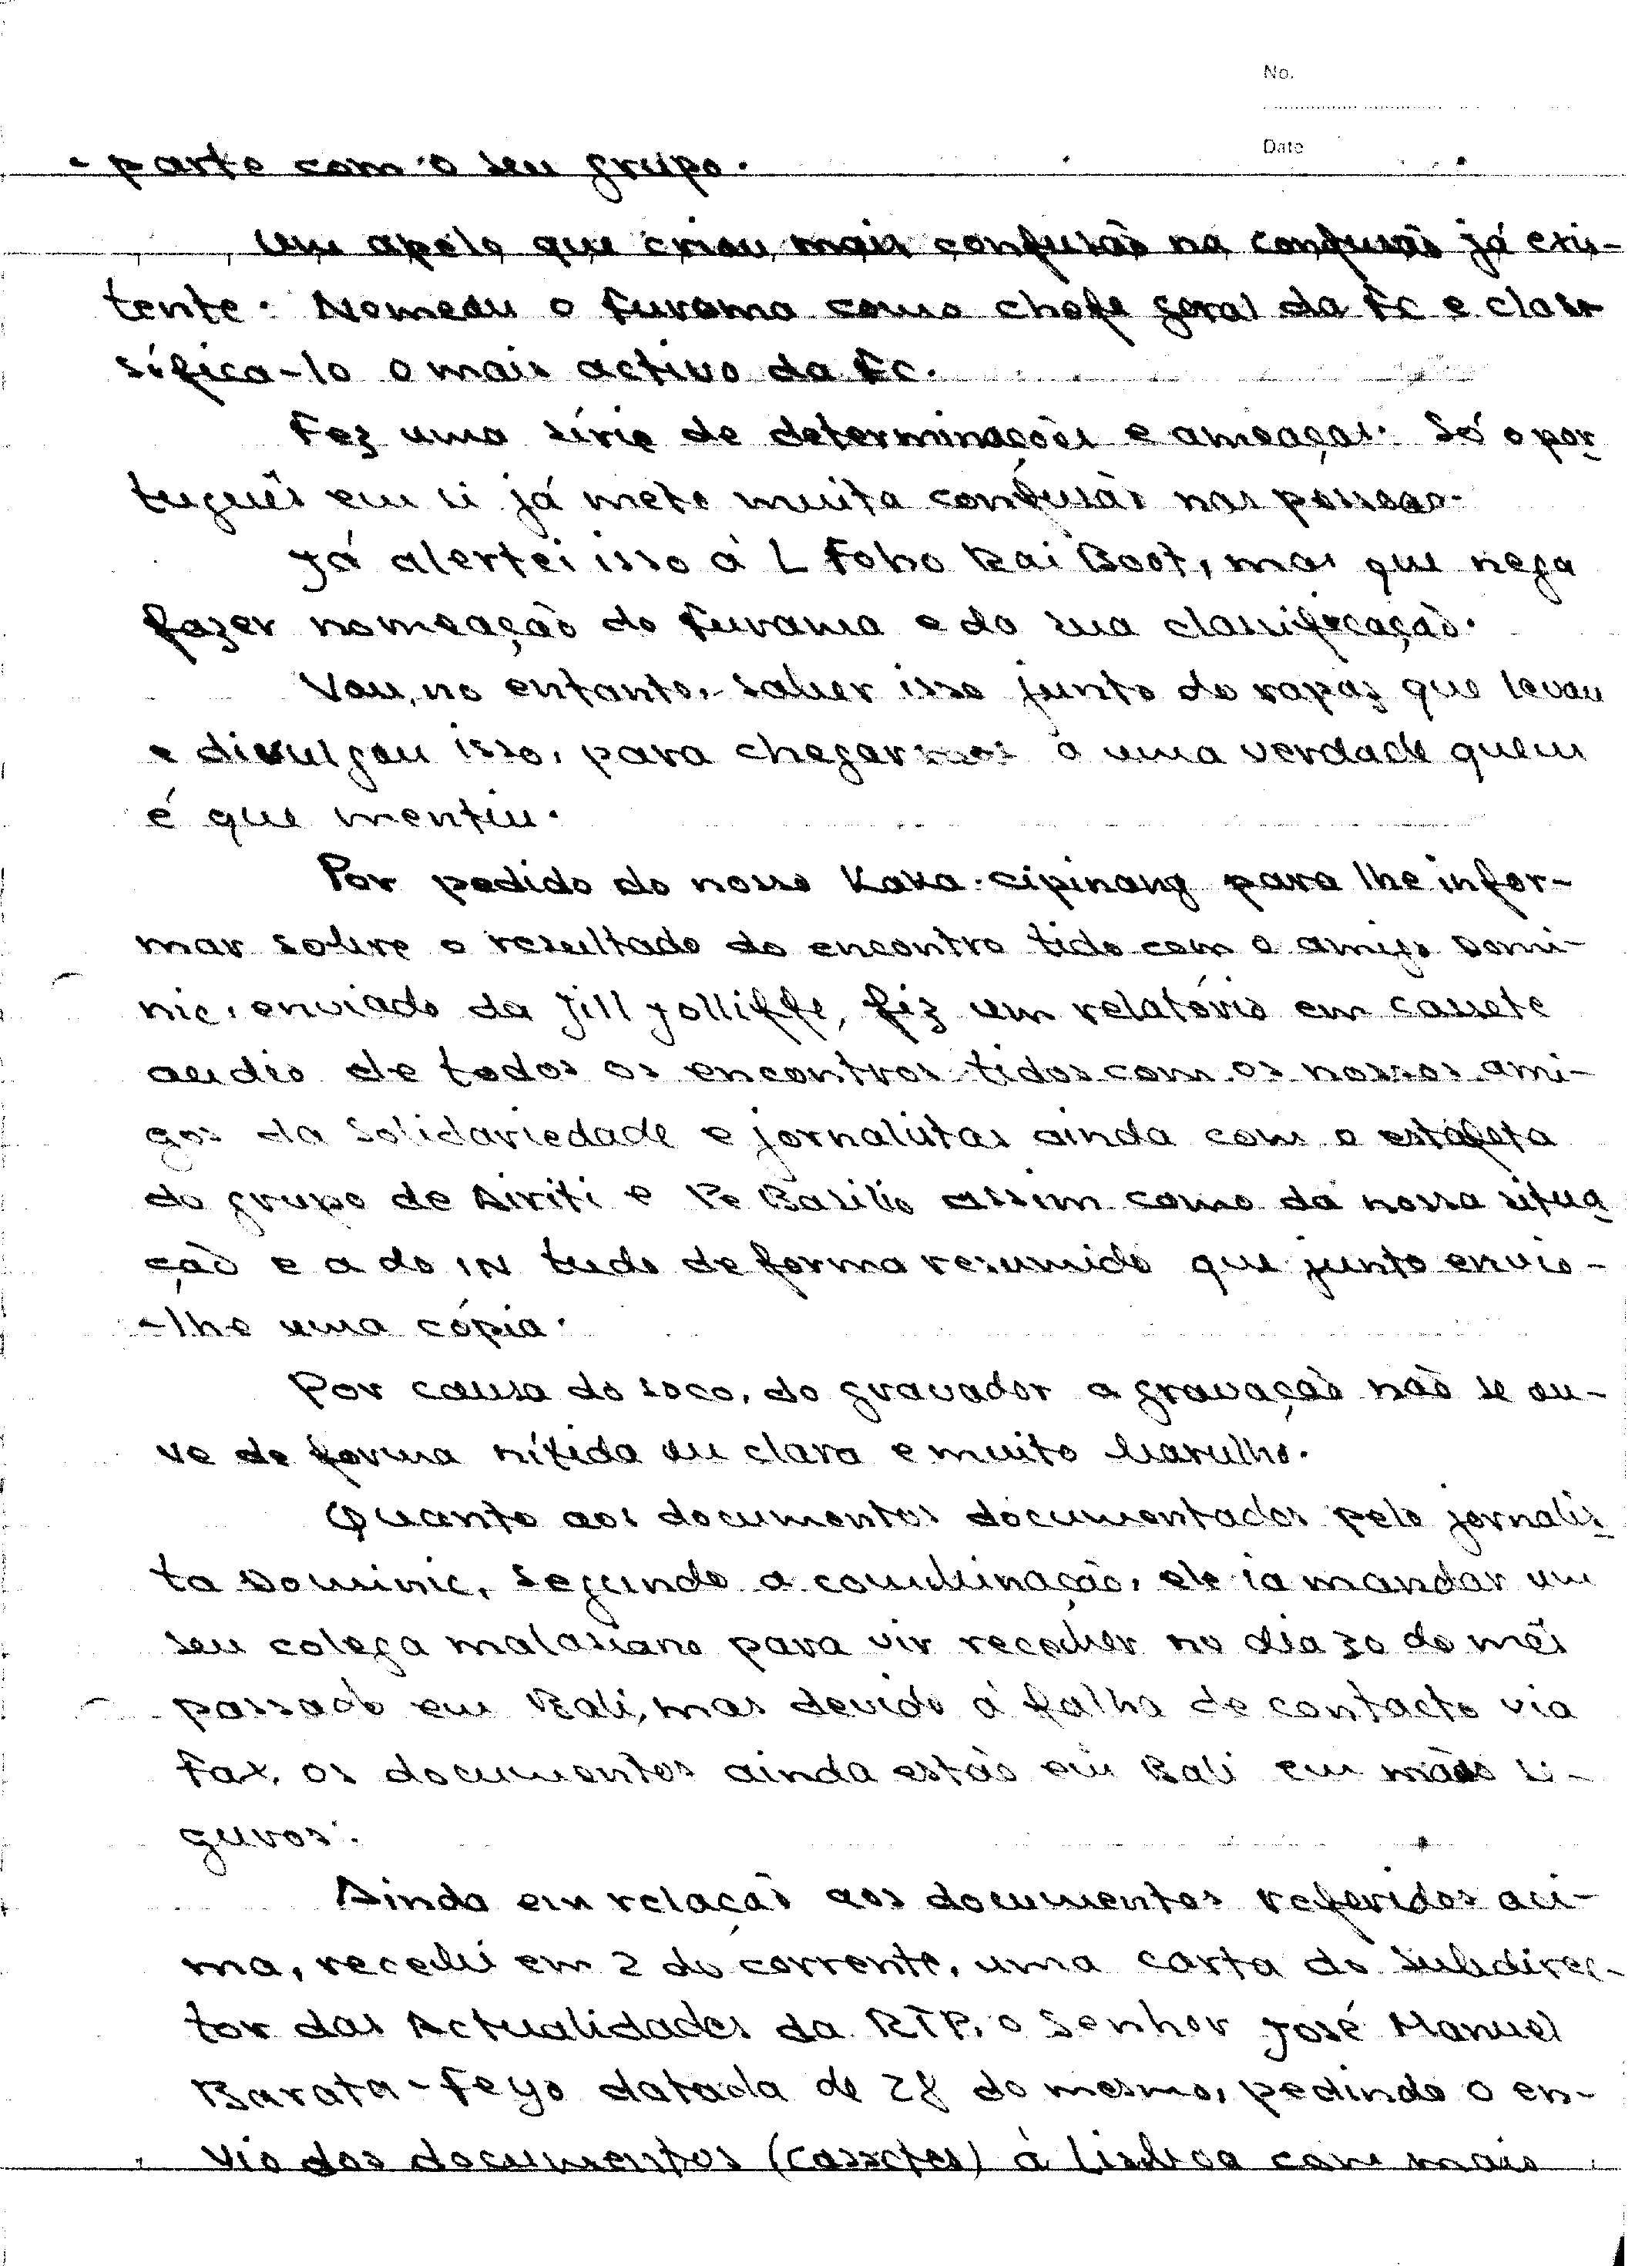 No.
Date
- parte com o seu grupo.
Um apelo que criou mais confusão na confusão já exis-
tente. Nomeou o Furama como chefe geral da FC e clas
sifica-lo o mais activo da FC.
Fez uma série de determinações e ameaças. Só o por
tuguês em si já mete muita confusão nas pessoas.
Já alertei isso á L Foho Rai Boot, mas que nega
fazer nomeação do Furama e da sua classificação.
Vou, no entanto, saber isso junto do rapaz que levou
e divulgou isso, para chegarmos a uma verdade quem
é que mentiu.
Por pedido do nosso Kaka-cipinang para lhe infor-
mar sobre o resultado do encontro tido com o amigo Domi-
nic, enviado da Jill Jolliffe, fiz um relatório em cassete
audio de todos os encontros tidos com os nossos ami-
gos da Solidariedade e jornalistas ainda com o estafeta
do grupo de Airiti e Pe Basilio assim como da nossa situa
ção e a do IN tudo de forma resumido que junto envio-
-lhe uma cópia.
Por causa do soco, do gravador a gravação não se ou-
ve de forma nítida ou clara e muito barulho.
Quanto aos documentos documentados pelo jornalis
ta Dominic, segundo a combinação, ele ia mandar um
seu colega malasiano para vir receber no dia 30 do mês
passado em Bali, mas devido á falha de contacto via
fax, os documentos ainda estão em Bali em mãos si-
guros.
Ainda em relação aos documentos referidos aci-
ma, recebi em 2 do corrente, uma carta do Subdirec-
tor das Actualidades da RTP, o Senhor José Manuel
Barata-Feyo datada de 28 do mesmo, pedindo o en-
vio dos documentos (cassetes) á Lisboa com mais